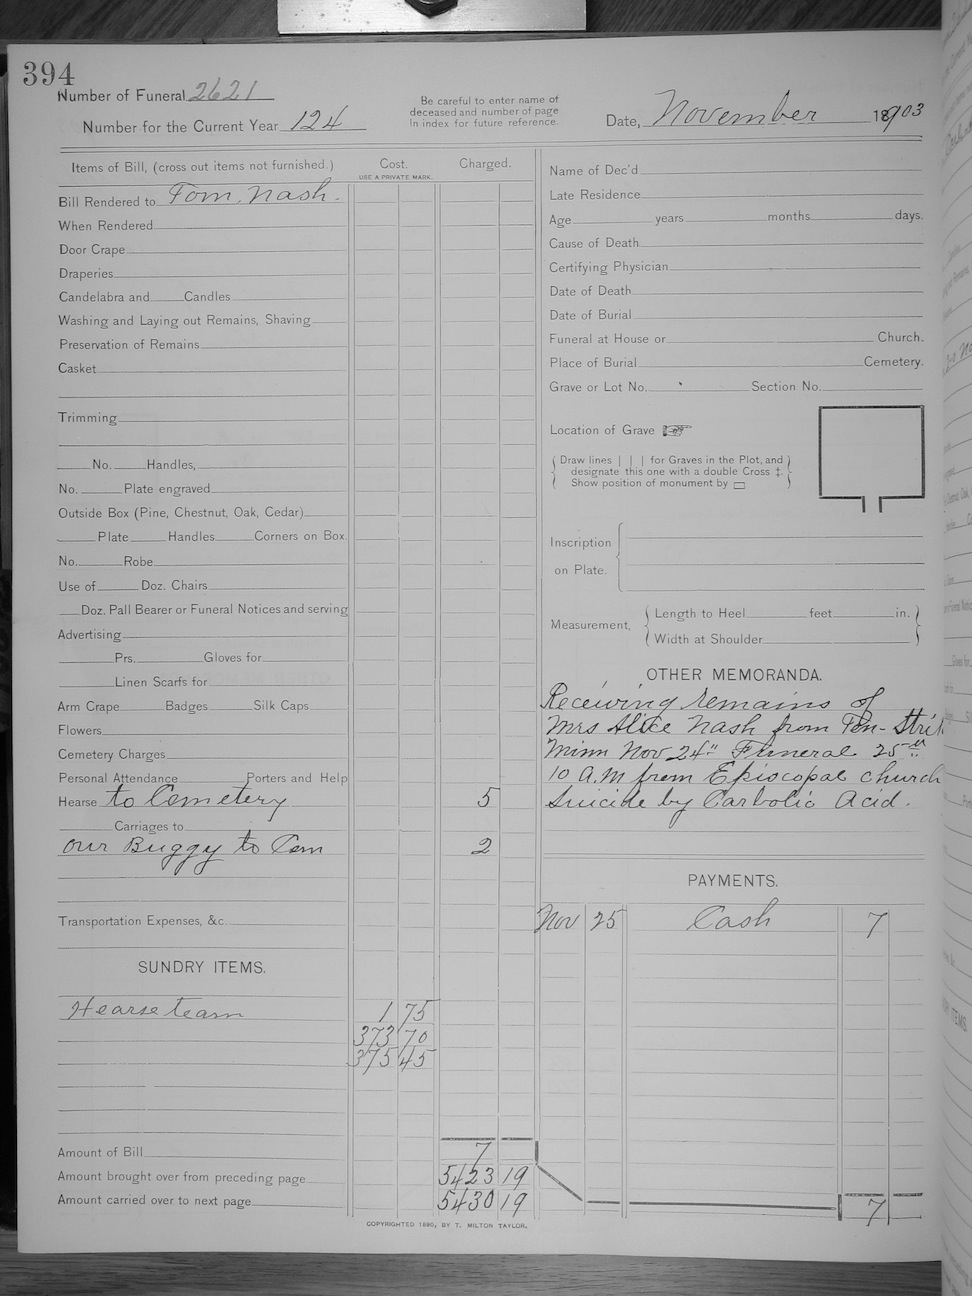 394
Number of Funeral 2621
Number for the Current Year 124
Be careful to enter name of
deceased and number of page
in index for future reference.
Date, November 1903
Items of Bill, (cross out items not furnished.) Cost. Charged.
USE A PRIVATE MARK.
Bill Rendered to Tom. Nash.
When Rendered
Door Crape
Draperies
Candelabra and Candles
Washing and Laying out Remains, Shaving
Preservation of Remains
Casket
Trimming
No. Handles,
No. Plate engraved
Outside Box (Pine, Chestnut, Oak, Cedar)
Plate Handles Corners on Box.
No. Robe
Use of Doz. Chairs
Doz. Pall Bearer or Funeral Notices and serving
Advertising
Prs. Gloves for
Linen Scarfs for
Arm Crape Badges Silk Caps
Flowers
Cemetery Charges
Personal Attendance Porters and Help
Hearse to Cemetery 5
Carriages to
our Buggy to Cem 2
Transportation Expenses, &c.
SUNDRY ITEMS.
Hearse team 1 75
373 70
375 45
Amount of Bill 7
Amount brought over from preceding page 5423 19
Amount carried over to next page 5430 19
Name of Dec'd
Late Residence
Age years months days.
Cause of Death
Certifying Physician
Date of Death
Date of Burial
Funeral at House or Church.
Place of Burial Cemetery.
Grave or Lot No. Section No.
Location of Grave ☞
Draw lines | | | for Graves in the Plot, and
designate this one with a double Cross ‡.
Show position of monument by ▭
Inscription
on Plate.
Measurement,
Length to Heel feet in.
Width at Shoulder
OTHER MEMORANDA.
Receiving remains of
Mrs Alice Nash from Pen-Strik
Minn Nov 24" Funeral 25th
10 A.M from Episcopal church
Suicide by Carbolic Acid.
PAYMENTS.
Nov 25 Cash 7
7
COPYRIGHTED 1890, BY T. MILTON TAYLOR.